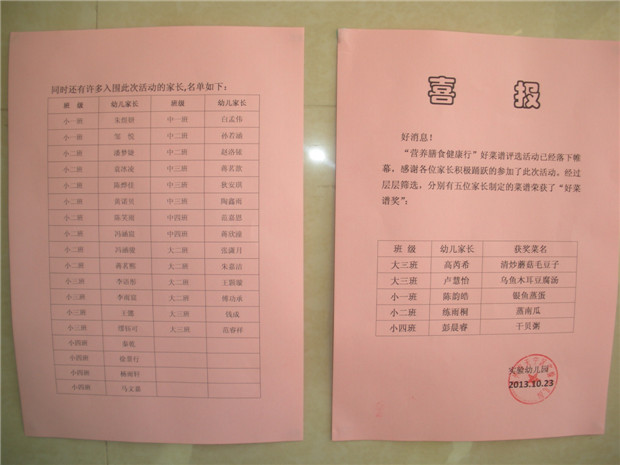 同时还有许多入围此次活动的家长,名单如下:
班 级 幼儿家长 班级 幼儿家长
小一班 中一班 白孟伟
小一班 中二班 孙若涵
小二班 潘梦婕 中二班 赵洛铱
小二班 中三班 蒋茗歆
小二班 陈烨佳 中三班 狄安琪
小二班 黄诺贝 中三班 陶鑫雨
小二班 陈笑雨 中四班 范嘉恩
小二班 冯涵宸 中四班 蒋欣凌
小二班 冯涵俊 大二班 张潇月
小二班 蒋茗熙 大二班 朱嘉洁
小三班 大二班 王颢璇
小三班 李雨宸 大二班 傅功承
小三班 王懿 大三班 钱成
小三班 大三班 范睿祥
小四班
小四班 徐景行
小四班 杨雨轩
小四班 马文嘉
喜 报
好消息!
“营养膳食健康行”好菜谱评选活动已经落下帷
幕,感谢各位家长积极踊跃的参加了此次活动。经过
层层筛选,分别有五位家长制定的菜谱荣获了“好菜
谱奖”:
班 级 幼儿家长 获奖菜名
大三班 高芮希 清炒蘑菇毛豆子
大三班 卢慧怡 乌鱼木耳豆腐汤
小一班 陈韵皓 银鱼蒸蛋
小二班 练雨桐 蒸南瓜
小四班 彭晨睿 干贝粥
实验幼儿园
2013.10.23